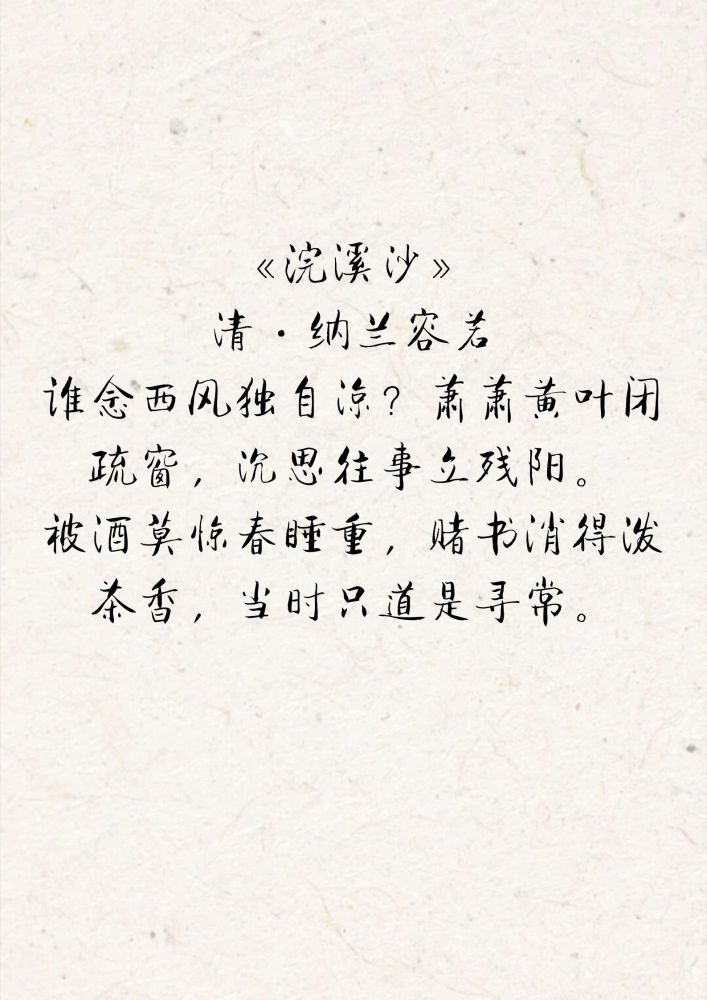 《浣溪沙》
清·纳兰容若
谁念西风独自凉？萧萧黄叶闭
疏窗，沉思往事立残阳。
被酒莫惊春睡重，赌书消得泼
茶香，当时只道是寻常。